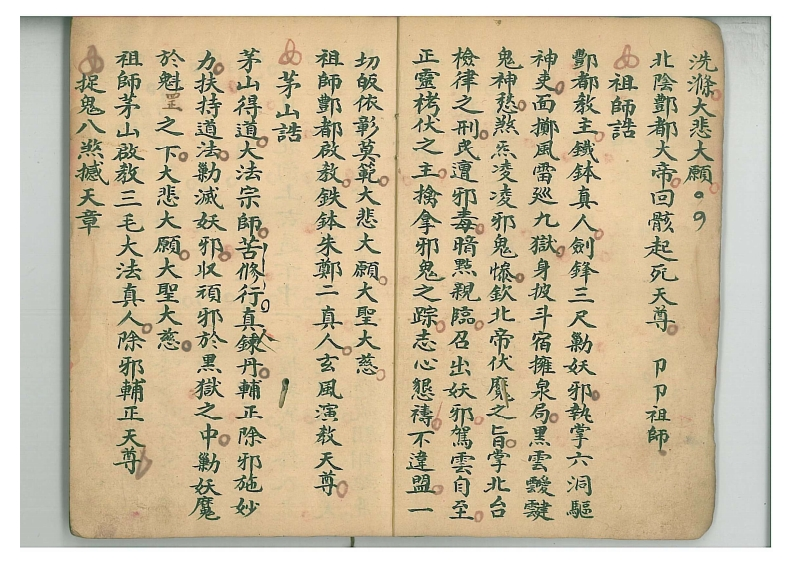 洗滌大悲大願
北陰酆都大帝回骸起死天尊 卩卩祖師
祖師誥
酆都教主鐵鉢真人劍鋒三尺勦妖邪執掌六洞驅
神吏面擲風雷廵九獄身披斗宿擁泉局黑雲靉靆
鬼神愁煞炁凌凌邪鬼慘欽北帝伏魔之旨掌北台
檢律之刑民遭邪毒暗點親臨召出妖邪駕雲自至
正靈栲伏之主擒拿邪鬼之踪志心懇禱不違盟一
切皈依彰莫範大悲大願大聖大慈
祖師酆都啟教鉄鉢朱鄭二真人玄風演教天尊
茅山誥
茅山得道大法宗師苦修行真鍊丹輔正除邪施妙
力扶持道法勦滅妖邪収頑邪於黑獄之中勦妖魔
於魁罡之下大悲大願大聖大慈
祖師茅山啟教三毛大法真人除邪輔正天尊
捉鬼八煞撼天章